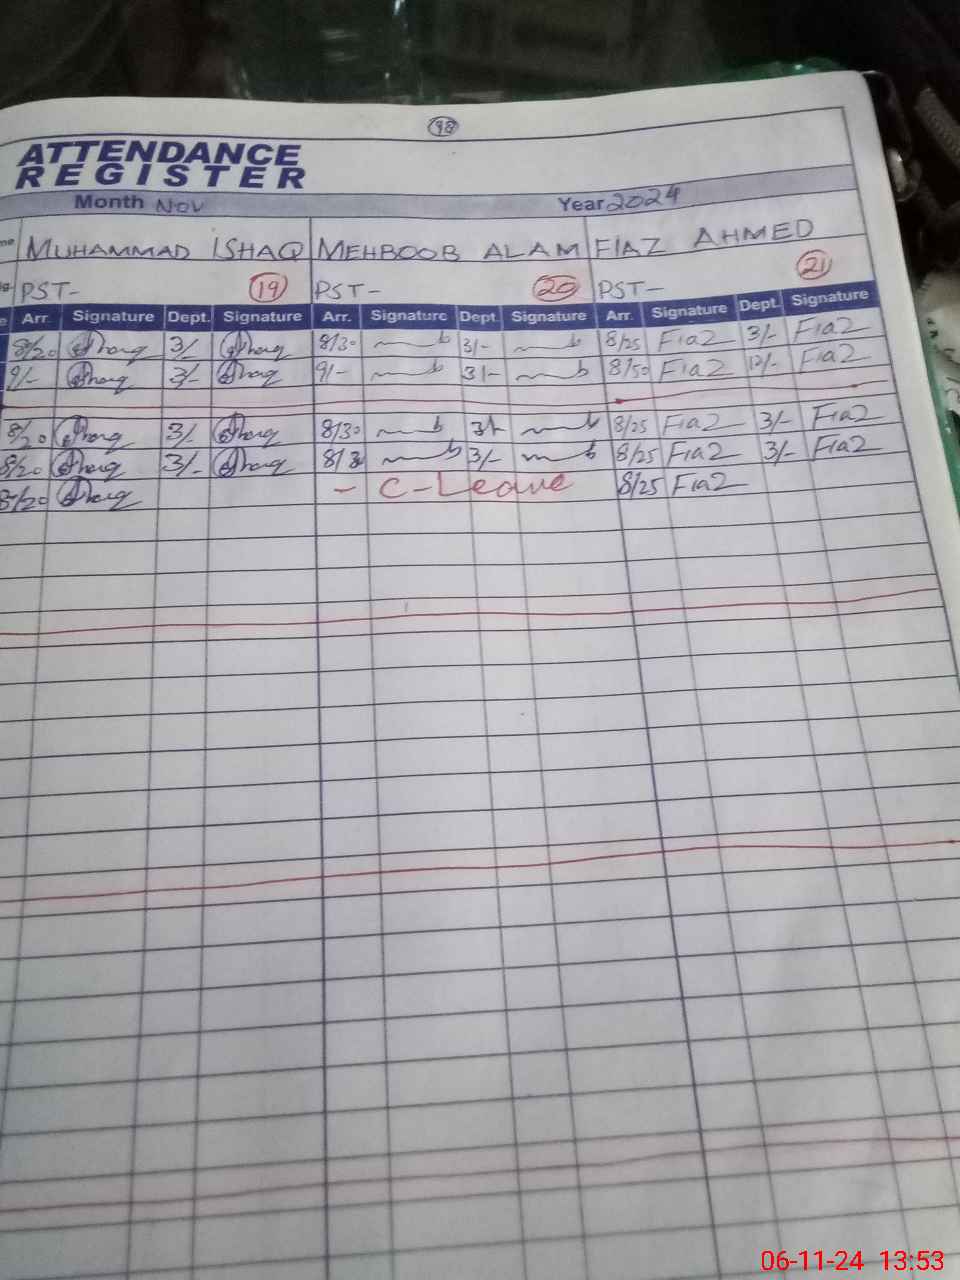 98
ATTENDANCE
REGISTER
Month Nov Year 2024
me MUHAMMAD ISHAQ MEHBOOB ALAM FIAZ AHMED
ig. PST- 19 PST- 20 PST- 21
e Arr. Signature Dept. Signature Arr. Signature Dept. Signature Arr. Signature Dept. Signature
8/20 3/- 8/30 3/- 8/25 Fiaz 3/- Fiaz
9/- 3/- 9/- 3/- 8/50 Fiaz 12/- Fiaz
8/20 3/- 8/30 3/- 8/25 Fiaz 3/- Fiaz
8/20 3/- 8/3 3/- 8/25 Fiaz 3/- Fiaz
8/20 - C-Leave 8/25 Fiaz
06-11-24 13:53